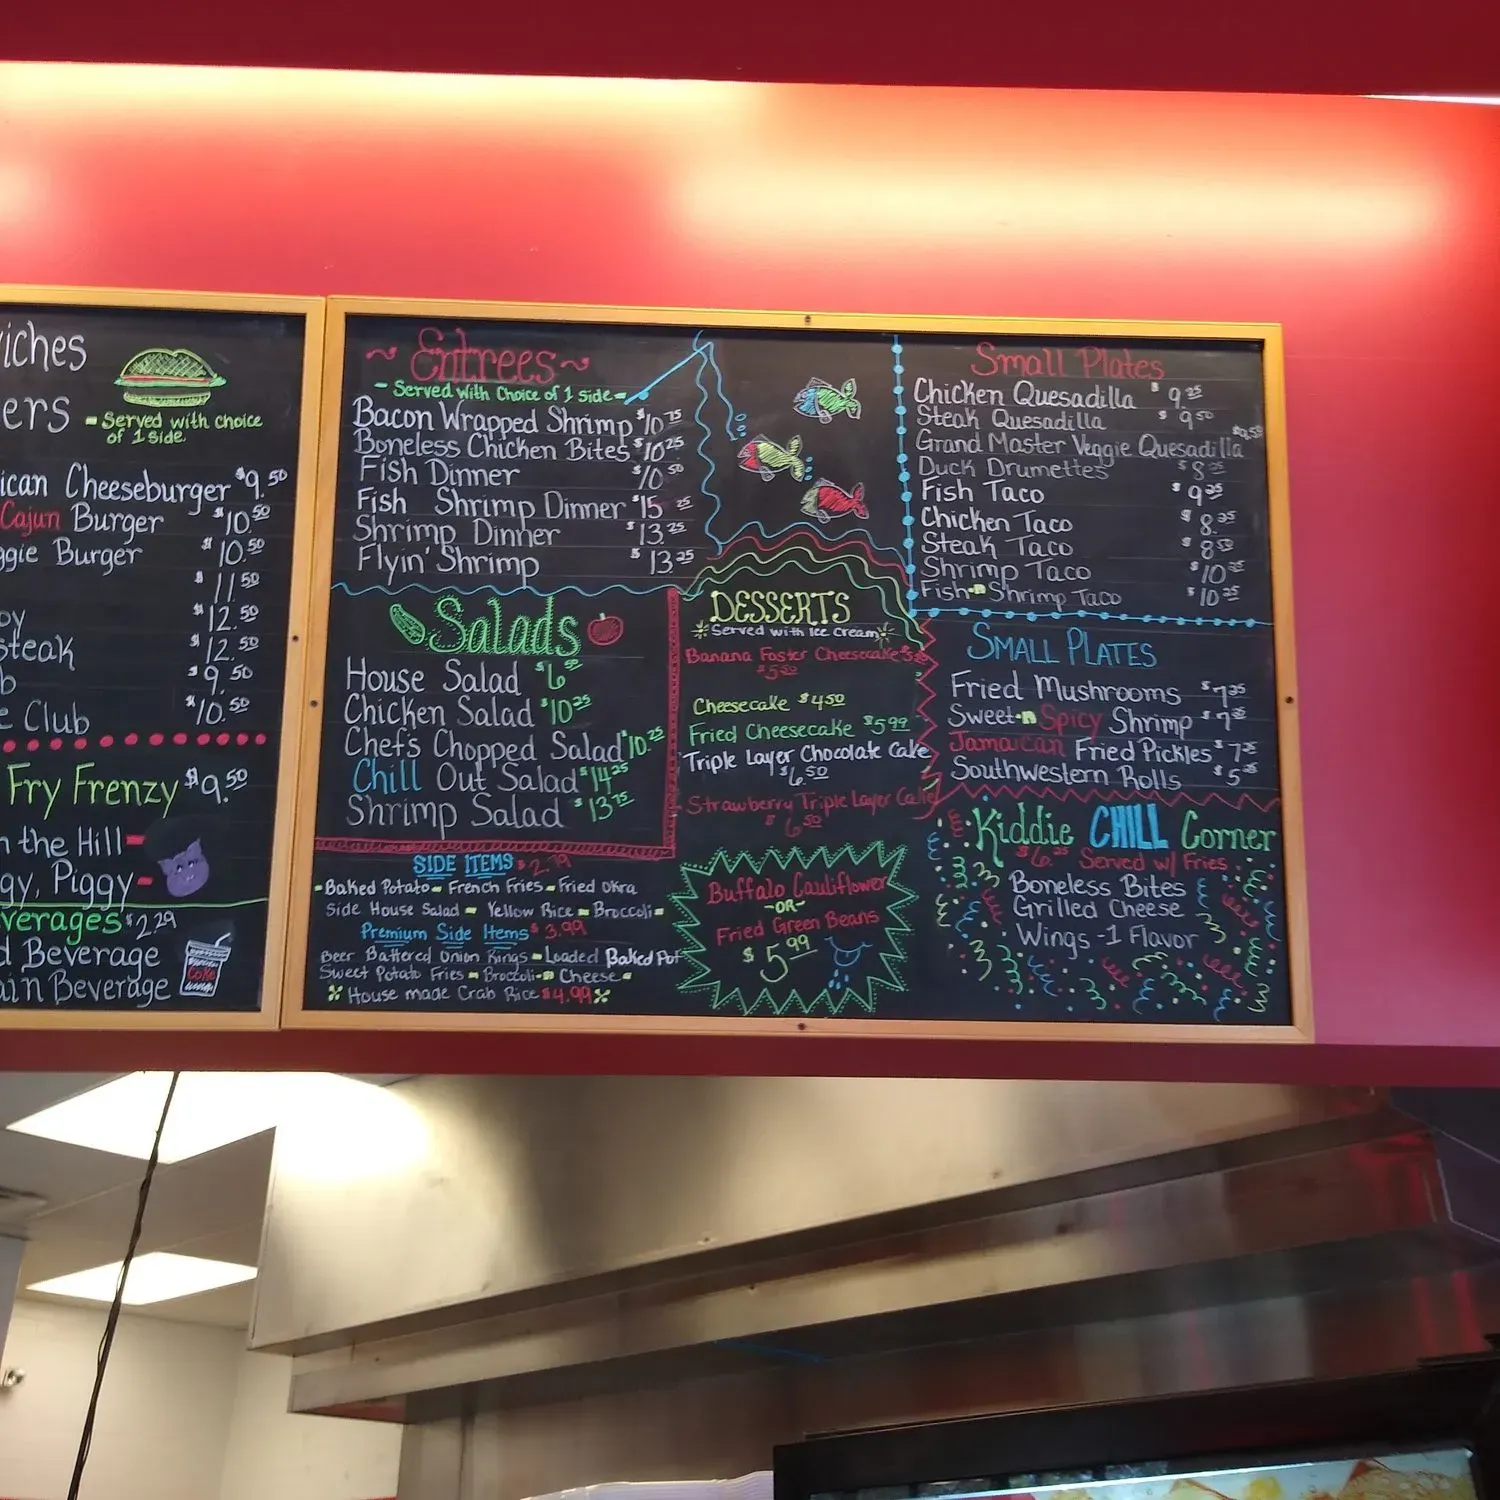 iches
ers
- Served with choice
of 1 side.
ican Cheeseburger $9.50
Cajun Burger $10.50
ggie Burger $10.50
$11.50
oy $12.50
steak $12.50
b $9.50
e Club $10.50
Fry Frenzy $9.50
n the Hill -
gy, Piggy -
verages $2.29
d Beverage
ain Beverage
Coke
~ Entrees ~
- Served with Choice of 1 side -
Bacon Wrapped Shrimp $10.75
Boneless Chicken Bites $10.25
Fish Dinner $10.50
Fish Shrimp Dinner $15.25
Shrimp Dinner $13.25
Flyin' Shrimp $13.25
Salads
House Salad $6.50
Chicken Salad $10.25
Chef's Chopped Salad $10.25
Chill Out Salad $14.25
Shrimp Salad $13.75
SIDE ITEMS $2.79
- Baked Potato - French Fries - Fried Okra
Side House Salad - Yellow Rice - Broccoli -
Premium Side Items $3.99
Beer Battered Onion Rings - Loaded Baked Pot
Sweet Potato Fries - Broccoli -n- Cheese -
House made Crab Rice $4.99
DESSERTS
Served with Ice Cream
Banana Foster Cheesecake
$5.50
Cheesecake $4.50
Fried Cheesecake $5.99
Triple Layer Chocolate Cake
$6.50
Strawberry Triple Layer Cake
$6.50
Buffalo Cauliflower
-OR-
Fried Green Beans
$5.99
Small Plates
Chicken Quesadilla $9.25
Steak Quesadilla $9.50
Grand Master Veggie Quesadilla $9.50
Duck Drumettes $8.25
Fish Taco $9.25
Chicken Taco $8.25
Steak Taco $8.50
Shrimp Taco $10.25
Fish -n- Shrimp Taco $10.25
SMALL PLATES
Fried Mushrooms $7.25
Sweet -n- Spicy Shrimp $7.25
Jamaican Fried Pickles $7.25
Southwestern Rolls $5.25
Kiddie CHILL Corner
$6.25 Served w/ Fries
Boneless Bites
Grilled Cheese
Wings - 1 Flavor